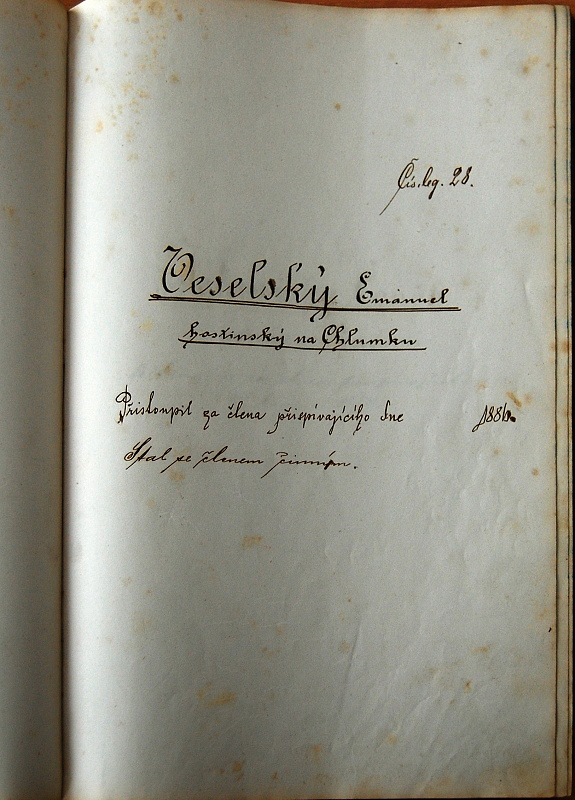 Čís. leg. 28.
Veselský Emanuel
hostinský na Chlumku
Přistoupil za člena přispívajícího dne 1886.
Stal se členem činným.